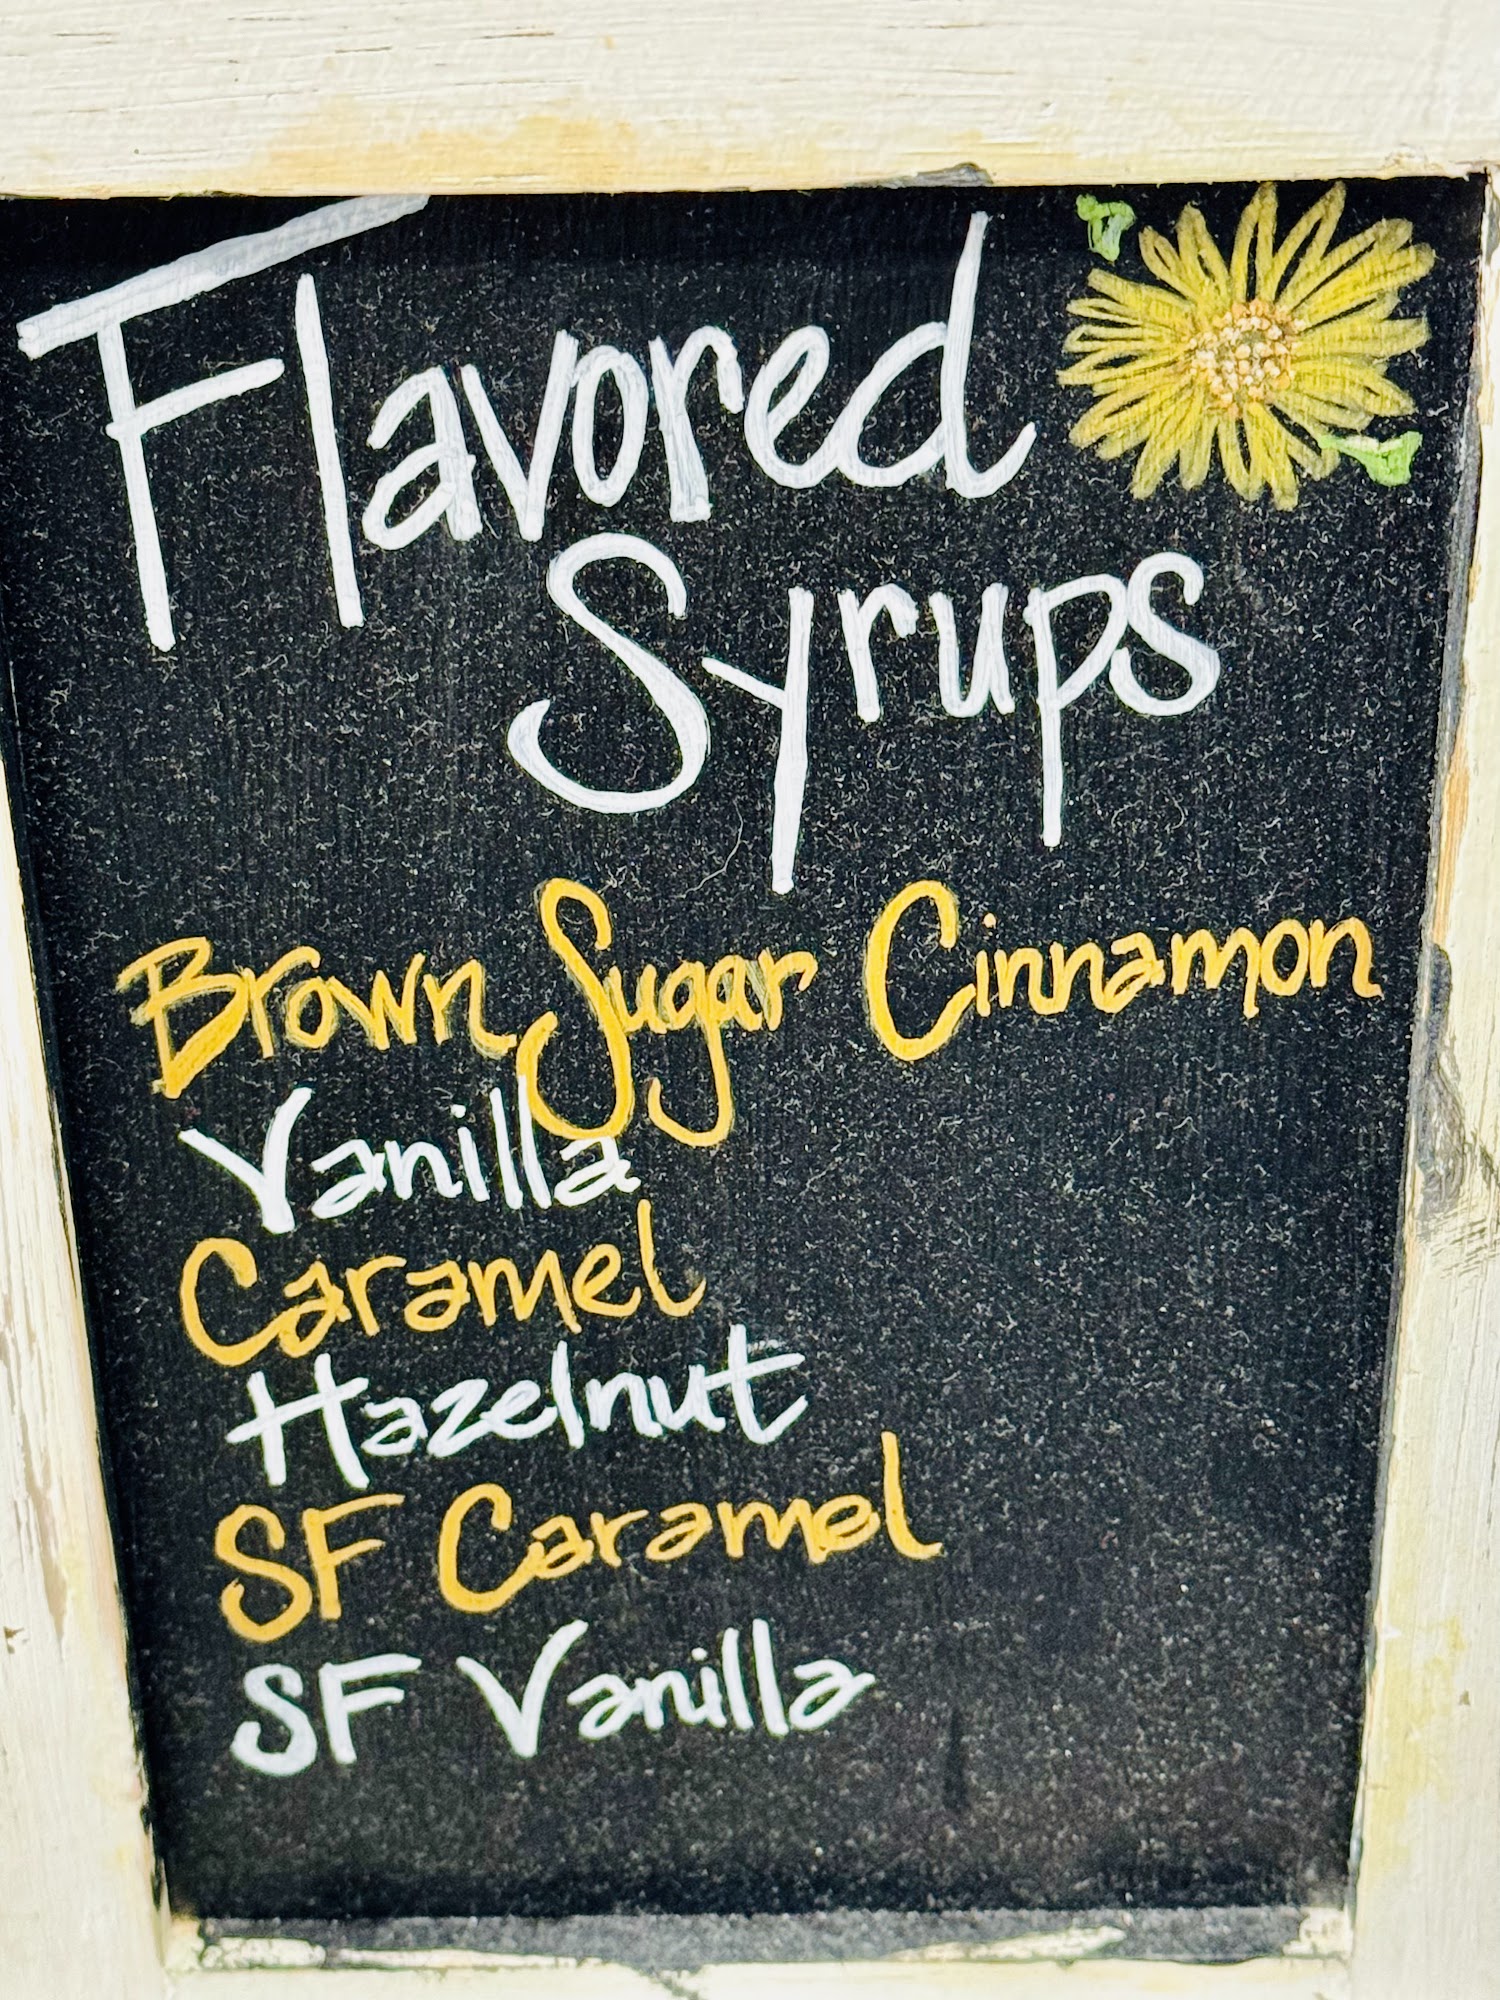 Flavored
Syrups
Brown Sugar Cinnamon
Vanilla
Caramel
Hazelnut
SF Caramel
SF Vanilla